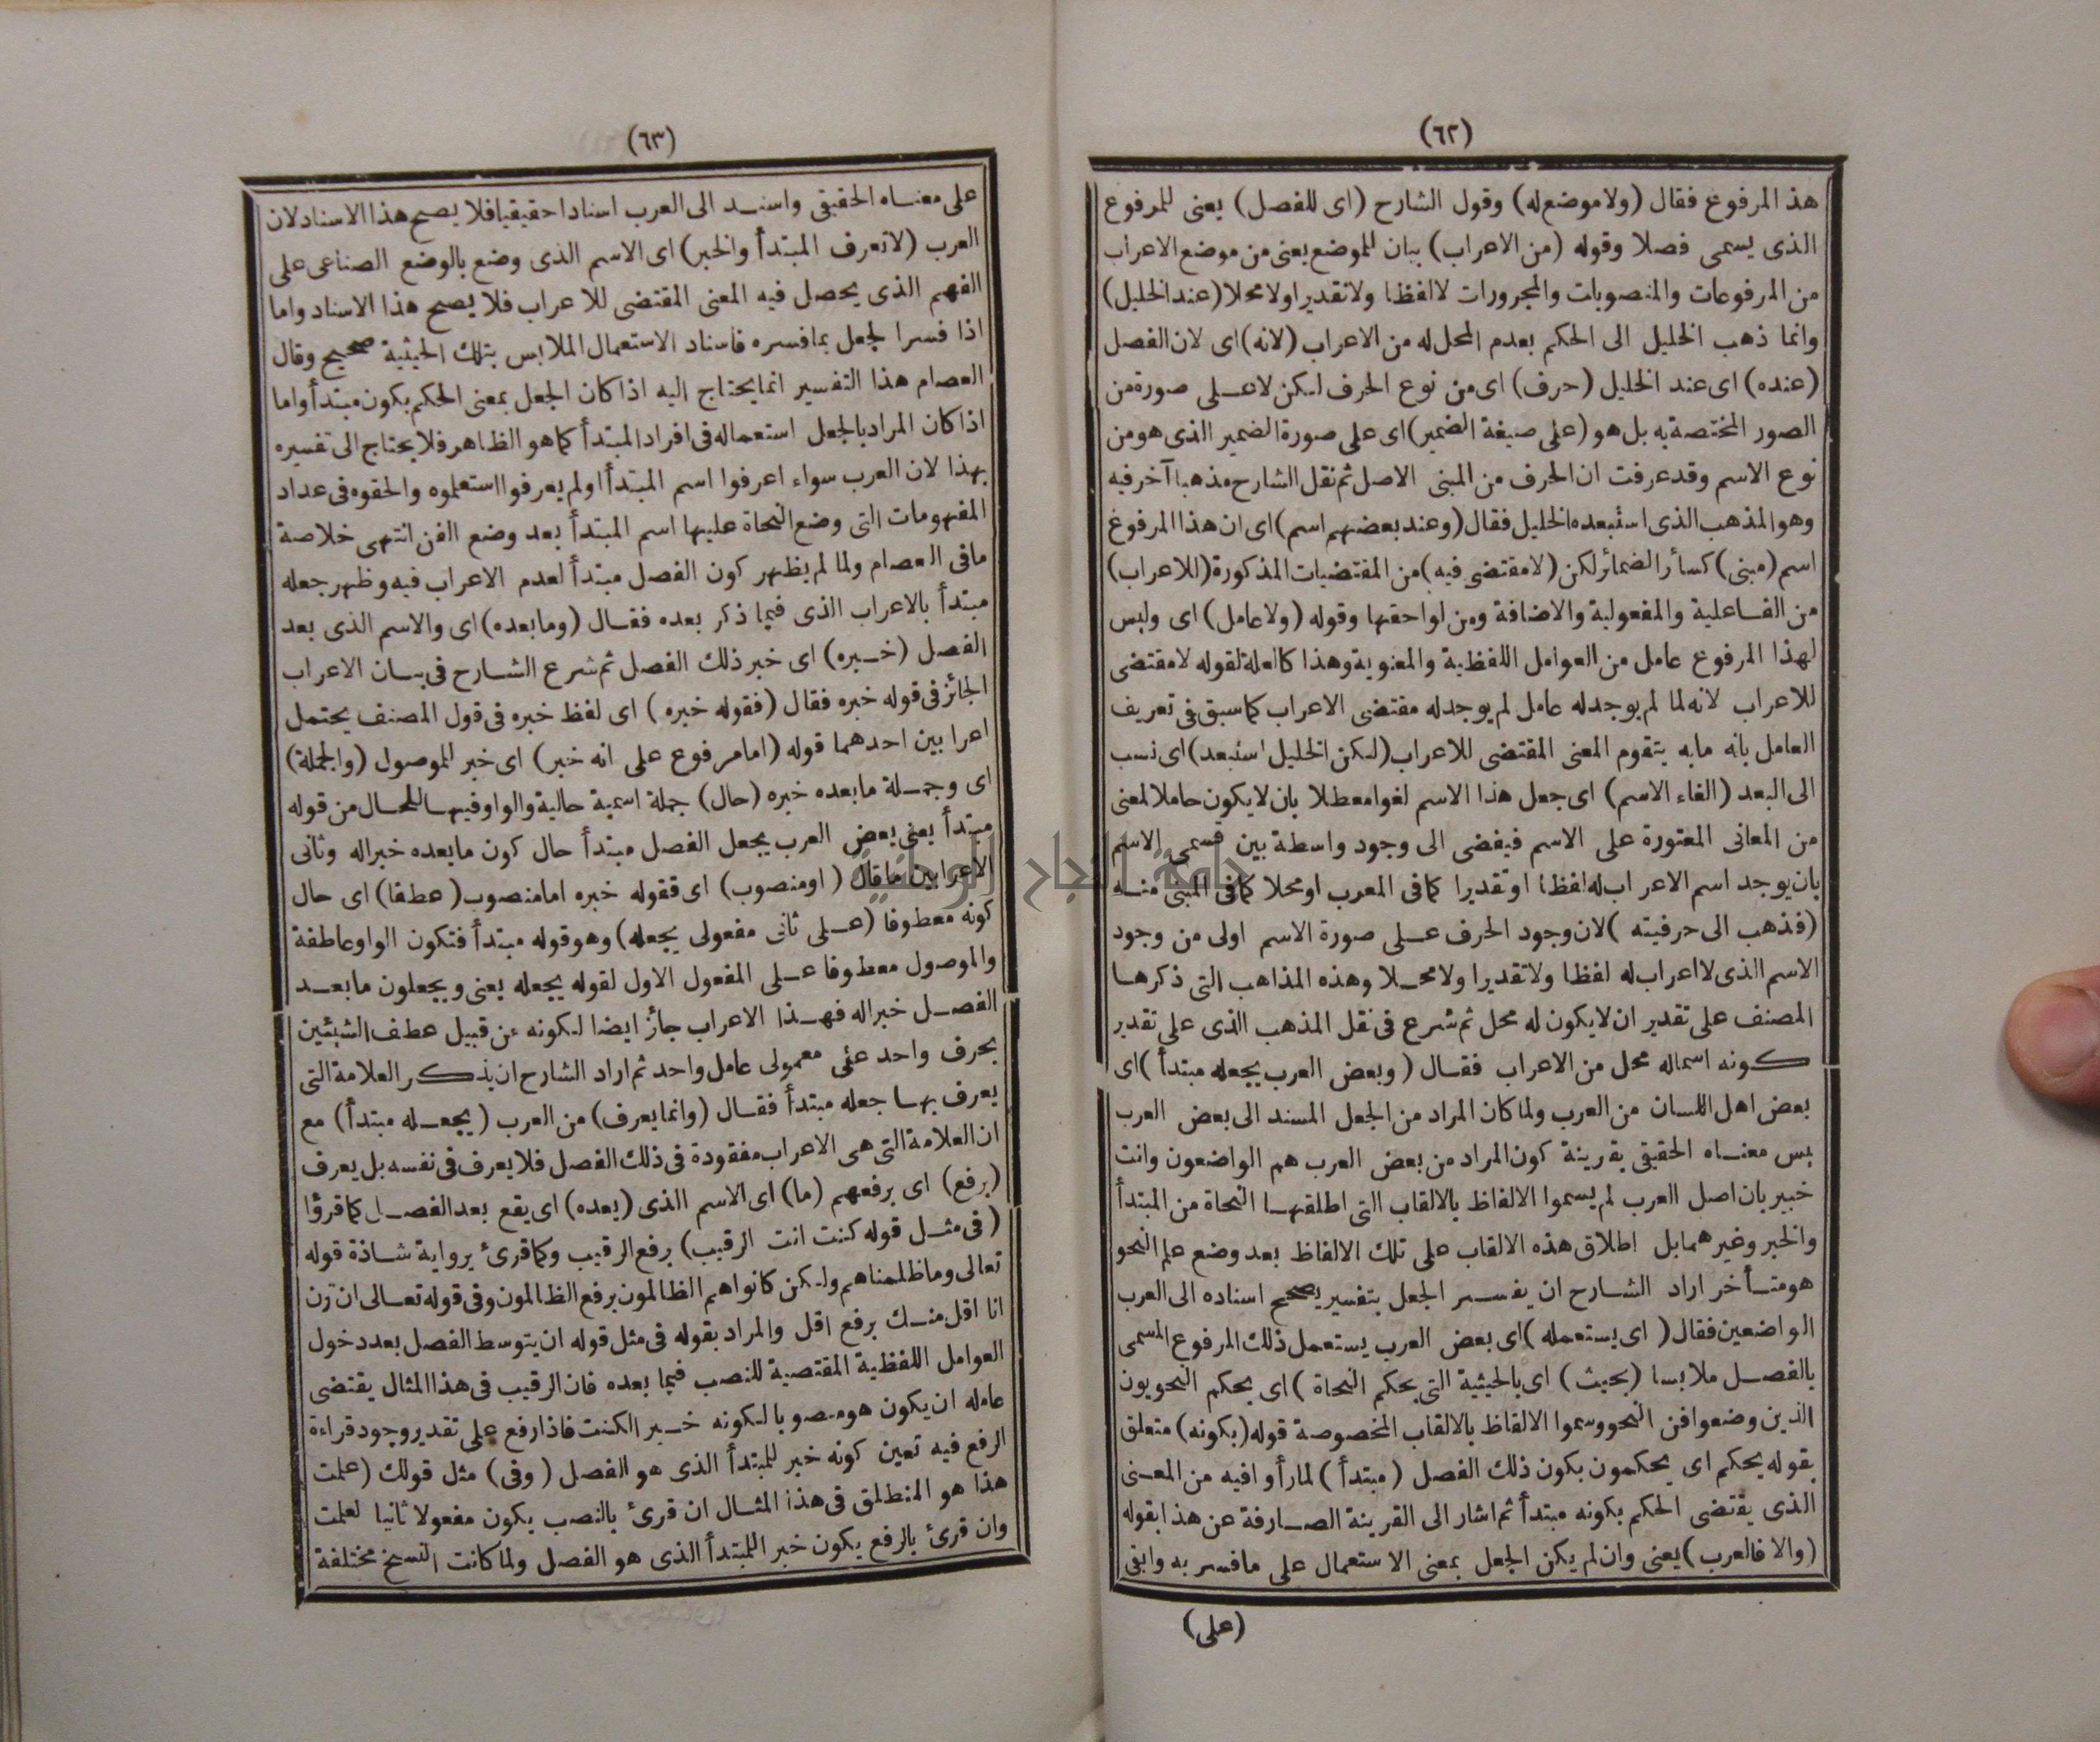 (٦٢)
هذ المرفوع فقال (ولا موضع له) وقول الشارح (اى للفصل) يعنى للمرفوع
الذى يسمى فصلا وقوله (من الاعراب) بيان للموضع يعنى من موضع الاعراب
من المرفوعات والمنصوبات والمجرورات لا لفظا ولا تقديرا ولا محلا (عند الخليل)
وانما ذهب الخليل الى الحكم بعدم المحل له من الاعراب (لانه) اى لان الفصل
(عنده) اى عند الخليل (حرف) اى من نوع الحرف لكن لا على صورة من
الصور المختصة به بل هو (على صيغة الضمير) اى على صورة الضمير الذى هو من
نوع الاسم وقد عرفت ان الحرف من المبنى الاصل ثم نقل الشارح مذهبا آخر فيه
وهو المذهب الذى استبعده الخليل فقال (وعند بعضهم اسم) اى ان هذا المرفوع
اسم (مبنى) كسائر الضمائر لكن (لا مقتضى فيه) من المقتضيات المذكورة (للاعراب)
من الفاعلية والمفعولية والاضافة ومن لواحقها وقوله (ولا عامل) اى وليس
لهذا المرفوع عامل من العوامل اللفظية والمعنوية وهذا كالعلة لقوله لا مقتضى
للاعراب لانه لما لم يوجد له عامل لم يوجد له مقتضى الاعراب كما سبق فى تعريف
العامل بانه مابه يتقوم المعنى المقتضى للاعراب (لكن الخليل استبعد) اى نسب
الى البعد (الغاء الاسم) اى جعل هذا الاسم لغوا معطلا بان لا يكون حاملا لمعنى
من المعانى المعتورة على الاسم فيفضى الى وجود واسطة بين قسمى الاسم
بان يوجد اسم الاعراب له لفظا او تقديرا كما فى المعرب او محلا كما فى المبنى منه
(فذهب الى حرفيته) لان وجود الحرف على صورة الاسم اولى من وجود
الاسم الذى لا اعراب له لفظا ولا تقديرا ولا محلا وهذه المذاهب التى ذكرها
المصنف على تقدير ان لا يكون له محل ثم شرع فى نقل المذهب الذى على تقدير
كونه اسما له محل من الاعراب فقال (وبعض العرب يجعله مبتدأ) اى
بعض اهل اللسان من العرب ولما كان المراد من الجعل المسند الى بعض العرب
ليس معناه الحقيقى بقرينة كون المراد من بعض العرب هم الواضعون وانت
خبير بان اصل العرب لم يسموا الالفاظ بالالقاب التى اطلقها النحاة من المبتدأ
والخبر وغيرهما بل اطلاق هذه الالقاب على تلك الالفاظ بعد وضع علم النحو
هو متأخر اراد الشارح ان يفسر الجعل بتفسير يصحح اسناده الى العرب
الواضعين فقال (اى يستعمله) اى بعض العرب يستعمل ذلك المرفوع المسمى
بالفصل ملابسا (بحيث) اى بالحيثية التى يحكم النحاة) اى يحكم النحويون
الذين وضعوا فن النحو وسموا الالفاظ بالالقاب المخصوصة قوله (بكونه) متعلق
بقوله يحكم اى يحكمون بكون ذلك الفصل (مبتدأ) لما رأوا فيه من المعنى
الذى يقتضى الحكم بكونه مبتدأ ثم اشار الى القرينة الصارفة عن هذا بقوله
(والا فالعرب) يعنى وان لم يكن الجعل بمعنى الاستعمال على ما فسر به وابقى
(على)
(٦٣)
على معناه الحقيقى واسند الى العرب اسنادا حقيقيا فلا يصح هذا الاسناد لان
العرب (لا تعرف المبتدأ والخبر) اى الاسم الذى وضع بالوضع الصناعى على
الفهم الذى يحصل فيه المعنى المقتضى للاعراب فلا يصح هذا الاسناد واما
اذا فسر الجعل بما فسره فاسناد الاستعمال الملابس بتلك الحيثية صحيح وقال
العصام هذا التفسير انما يحتاج اليه اذا كان الجعل بمعنى الحكم بكون مبتدأ واما
اذا كان المراد بالجعل استعماله فى افراد المبتدأ كما هو الظاهر فلا يحتاج الى تفسيره
بهذا لان العرب سواء اعرفوا اسم المبتدأ اولم يعرفوا استعملوه والحقوه فى عداد
المفهومات التى وضع النحاة عليها اسم المبتدأ بعد وضع الفن انتهى خلاصة
مافى العصام ولما لم يظهر كون الفصل مبتدأ لعدم الاعراب فيه وظهر جعله
مبتدأ بالاعراب الذى فيما ذكر بعده فقال (وما بعده) اى والاسم الذى بعد
الفصل (خبره) اى خبر ذلك الفصل ثم شرع الشارح فى بيان الاعراب
الجائز فى قوله خبره فقال (فقوله خبره) اى لفظ خبره فى قول المصنف يحتمل
اعرابين احدهما قوله (اما مرفوع على انه خبر) اى خبر للموصول (والجملة)
اى وجملة ما بعده خبره (حال) جملة اسمية حالية والواو فيها للحال من قوله
مبتدأ يعنى بعض العرب يجعل الفصل مبتدأ حال كون ما بعده خبرا له وثانى
الاعرابين ما قال (او منصوب) اى فقوله خبره اما منصوب (عطفا) اى حال
كونه معطوفا (على ثانى مفعولى يجعله) وهو قوله مبتدأ فتكون الواو عاطفة
والموصول معطوفا على المفعول الاول لقوله يجعله يعنى ويجعلون ما بعد
الفصل خبرا له فهذا الاعراب جائز ايضا لكونه من قبيل عطف الشيئين
بحرف واحد على معمولى عامل واحد ثم اراد الشارح ان يذكر العلامة التى
يعرف بها جعله مبتدأ فقال (وانما يعرف) من العرب (يجعله مبتدأ) مع
ان العلامة التى هى الاعراب مفقودة فى ذلك الفصل فلا يعرف فى نفسه بل يعرف
(برفع) اى برفعهم (ما) اى الاسم الذى (بعده) اى يقع بعد الفصل كما قرؤا
(فى مثل قوله كنت انت الرقيب) برفع الرقيب وكما قرئ برواية شاذة قوله
تعالى وما ظلمناهم ولكن كانوا هم الظالمون برفع الظالمون وفى قوله تعالى ان ترن
انا اقل منك برفع اقل والمراد بقوله فى مثل قوله ان يتوسط الفصل بعد دخول
العوامل اللفظية المقتضية للنصب فيما بعده فان الرقيب فى هذا المثال يقتضى
عامله ان يكون هو منصوبا لكونه خبر الكنت فاذا رفع على تقدير وجود قراءة
الرفع فيه تعين كونه خبر للمبتدأ الذى هو الفصل (وفى) مثل قولك (علمت
هذا هو المنطلق فى هذا المثال ان قرئ بالنصب يكون مفعولا ثانيا لعلمت
وان قرئ بالرفع يكون خبرا للمبتدأ الذى هو الفصل ولما كانت النسخ مختلفة
جامعة النجاح الوطنية